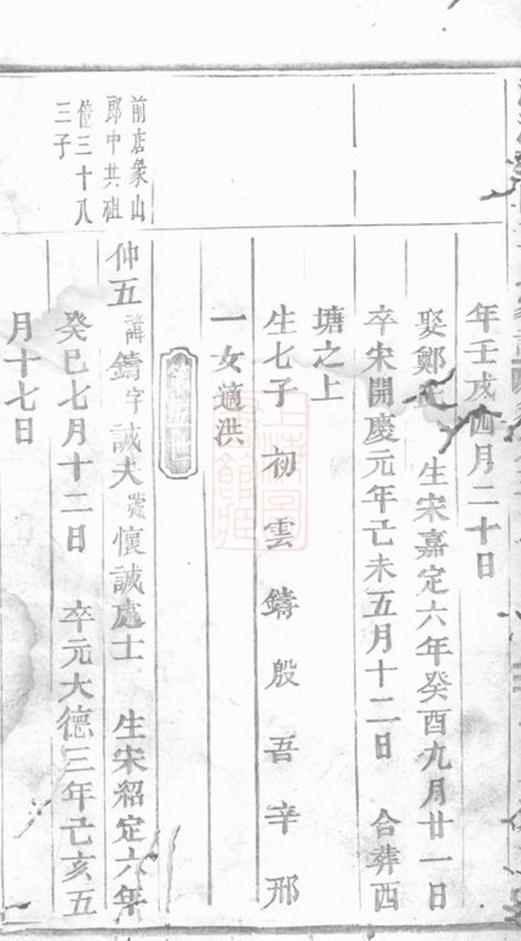 年壬戌四月二十日
娶鄭氏 生宋嘉定六年癸酉九月廿一日
卒宋開慶元年己未五月十二日 合葬西
塘之上
生七子 初 雲 鑄 殷 吾 辛 邢
一女適洪
前店象山
郎中共祖
億三十八
三子
仲五 諱鑄字誠夫號懷誠處士 生宋紹定六年
癸巳七月十二日 卒元大德三年己亥五
月十七日